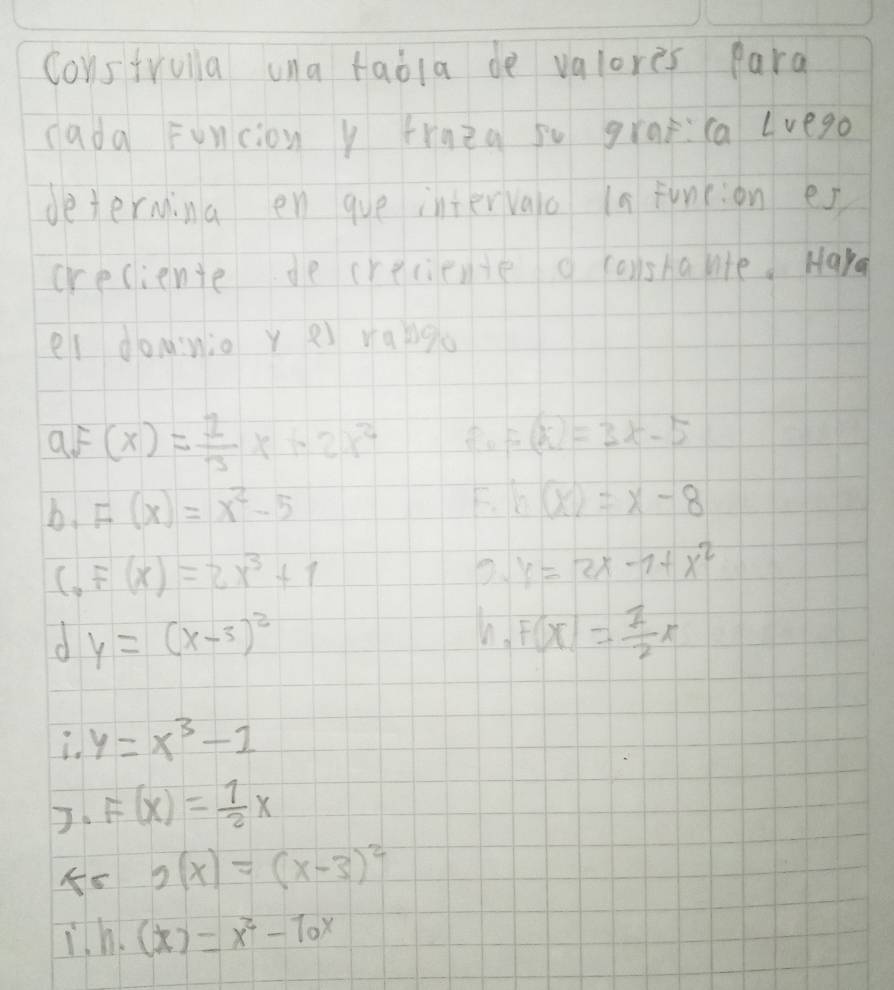 Construlla una tabla de valores para
cada Funcion y traza su grafica Luego
determina en que intervalo la Funcion es
creciente de creciente o constante. Hara
el dominio y el rango
a F(x) = 1/3 x + 2x²
e. F(x) = 3x - 5
b. F(x) = x² - 5
F. h(x) = x - 8
C. F(x) = 2x³ + 1
g. y = 2x - 1 + x²
d y = (x - 3)²
h. F(x) = 1/2 x
i. y = x³ - 1
J. F(x) = 1/2 x
K. g(x) = (x - 3)²
i. h. (x) = x² - 10x